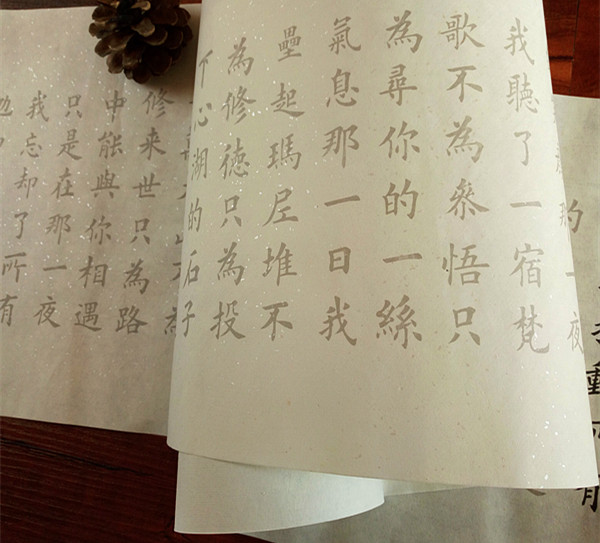 一夜
我聽了一宿梵
歌不為參悟只
為尋你的一絲
氣息那一日我
壘起瑪尼堆不
為修德只為投
下心湖的石子
修来世只為路
中能與你相遇
只是在那一夜
我忘却了所有